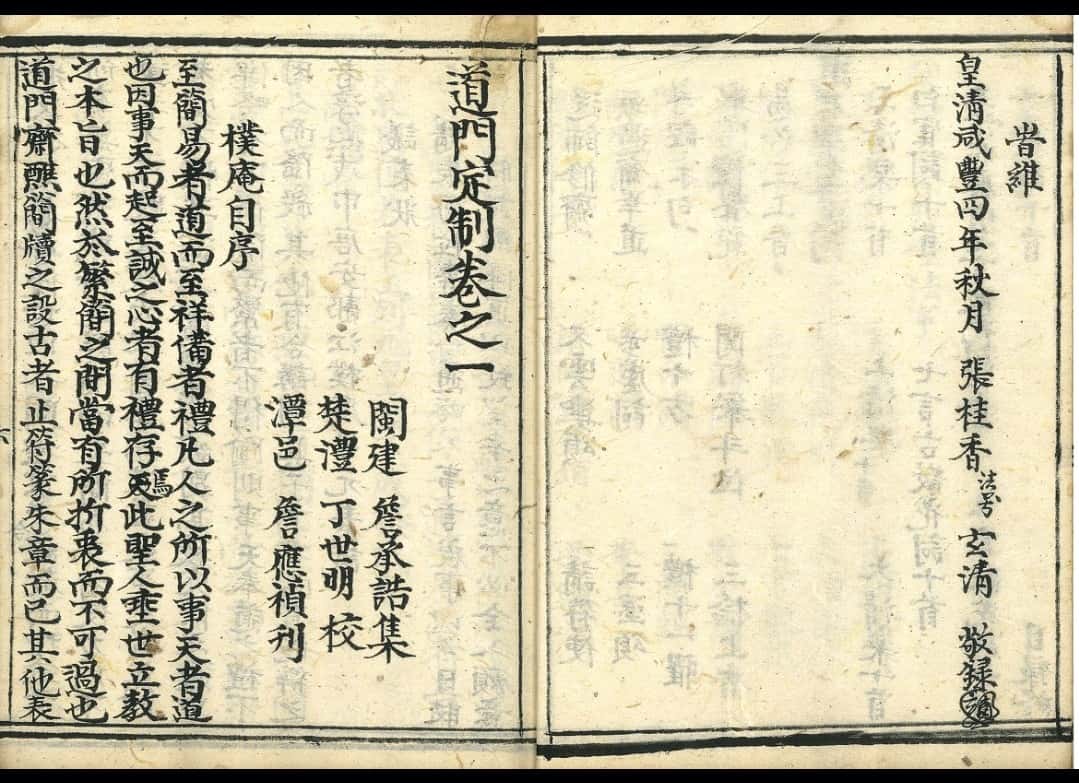 旹維
皇清咸豐四年秋月 張桂香 法号 玄清 敬録
道門定制卷之一
閩建 詹承誥集
楚澧 丁世明 校
潭邑 詹應禎刊
樸庵自序
至簡易者道而至祥備者禮凡人之所以事天者道
也因事天而起至誠之心者有禮存焉此聖人埀世立教
之本旨也然於繁簡之間當有所折衷而不可過也
道門齋醮簡牘之設古者止符篆朱章而已其他表